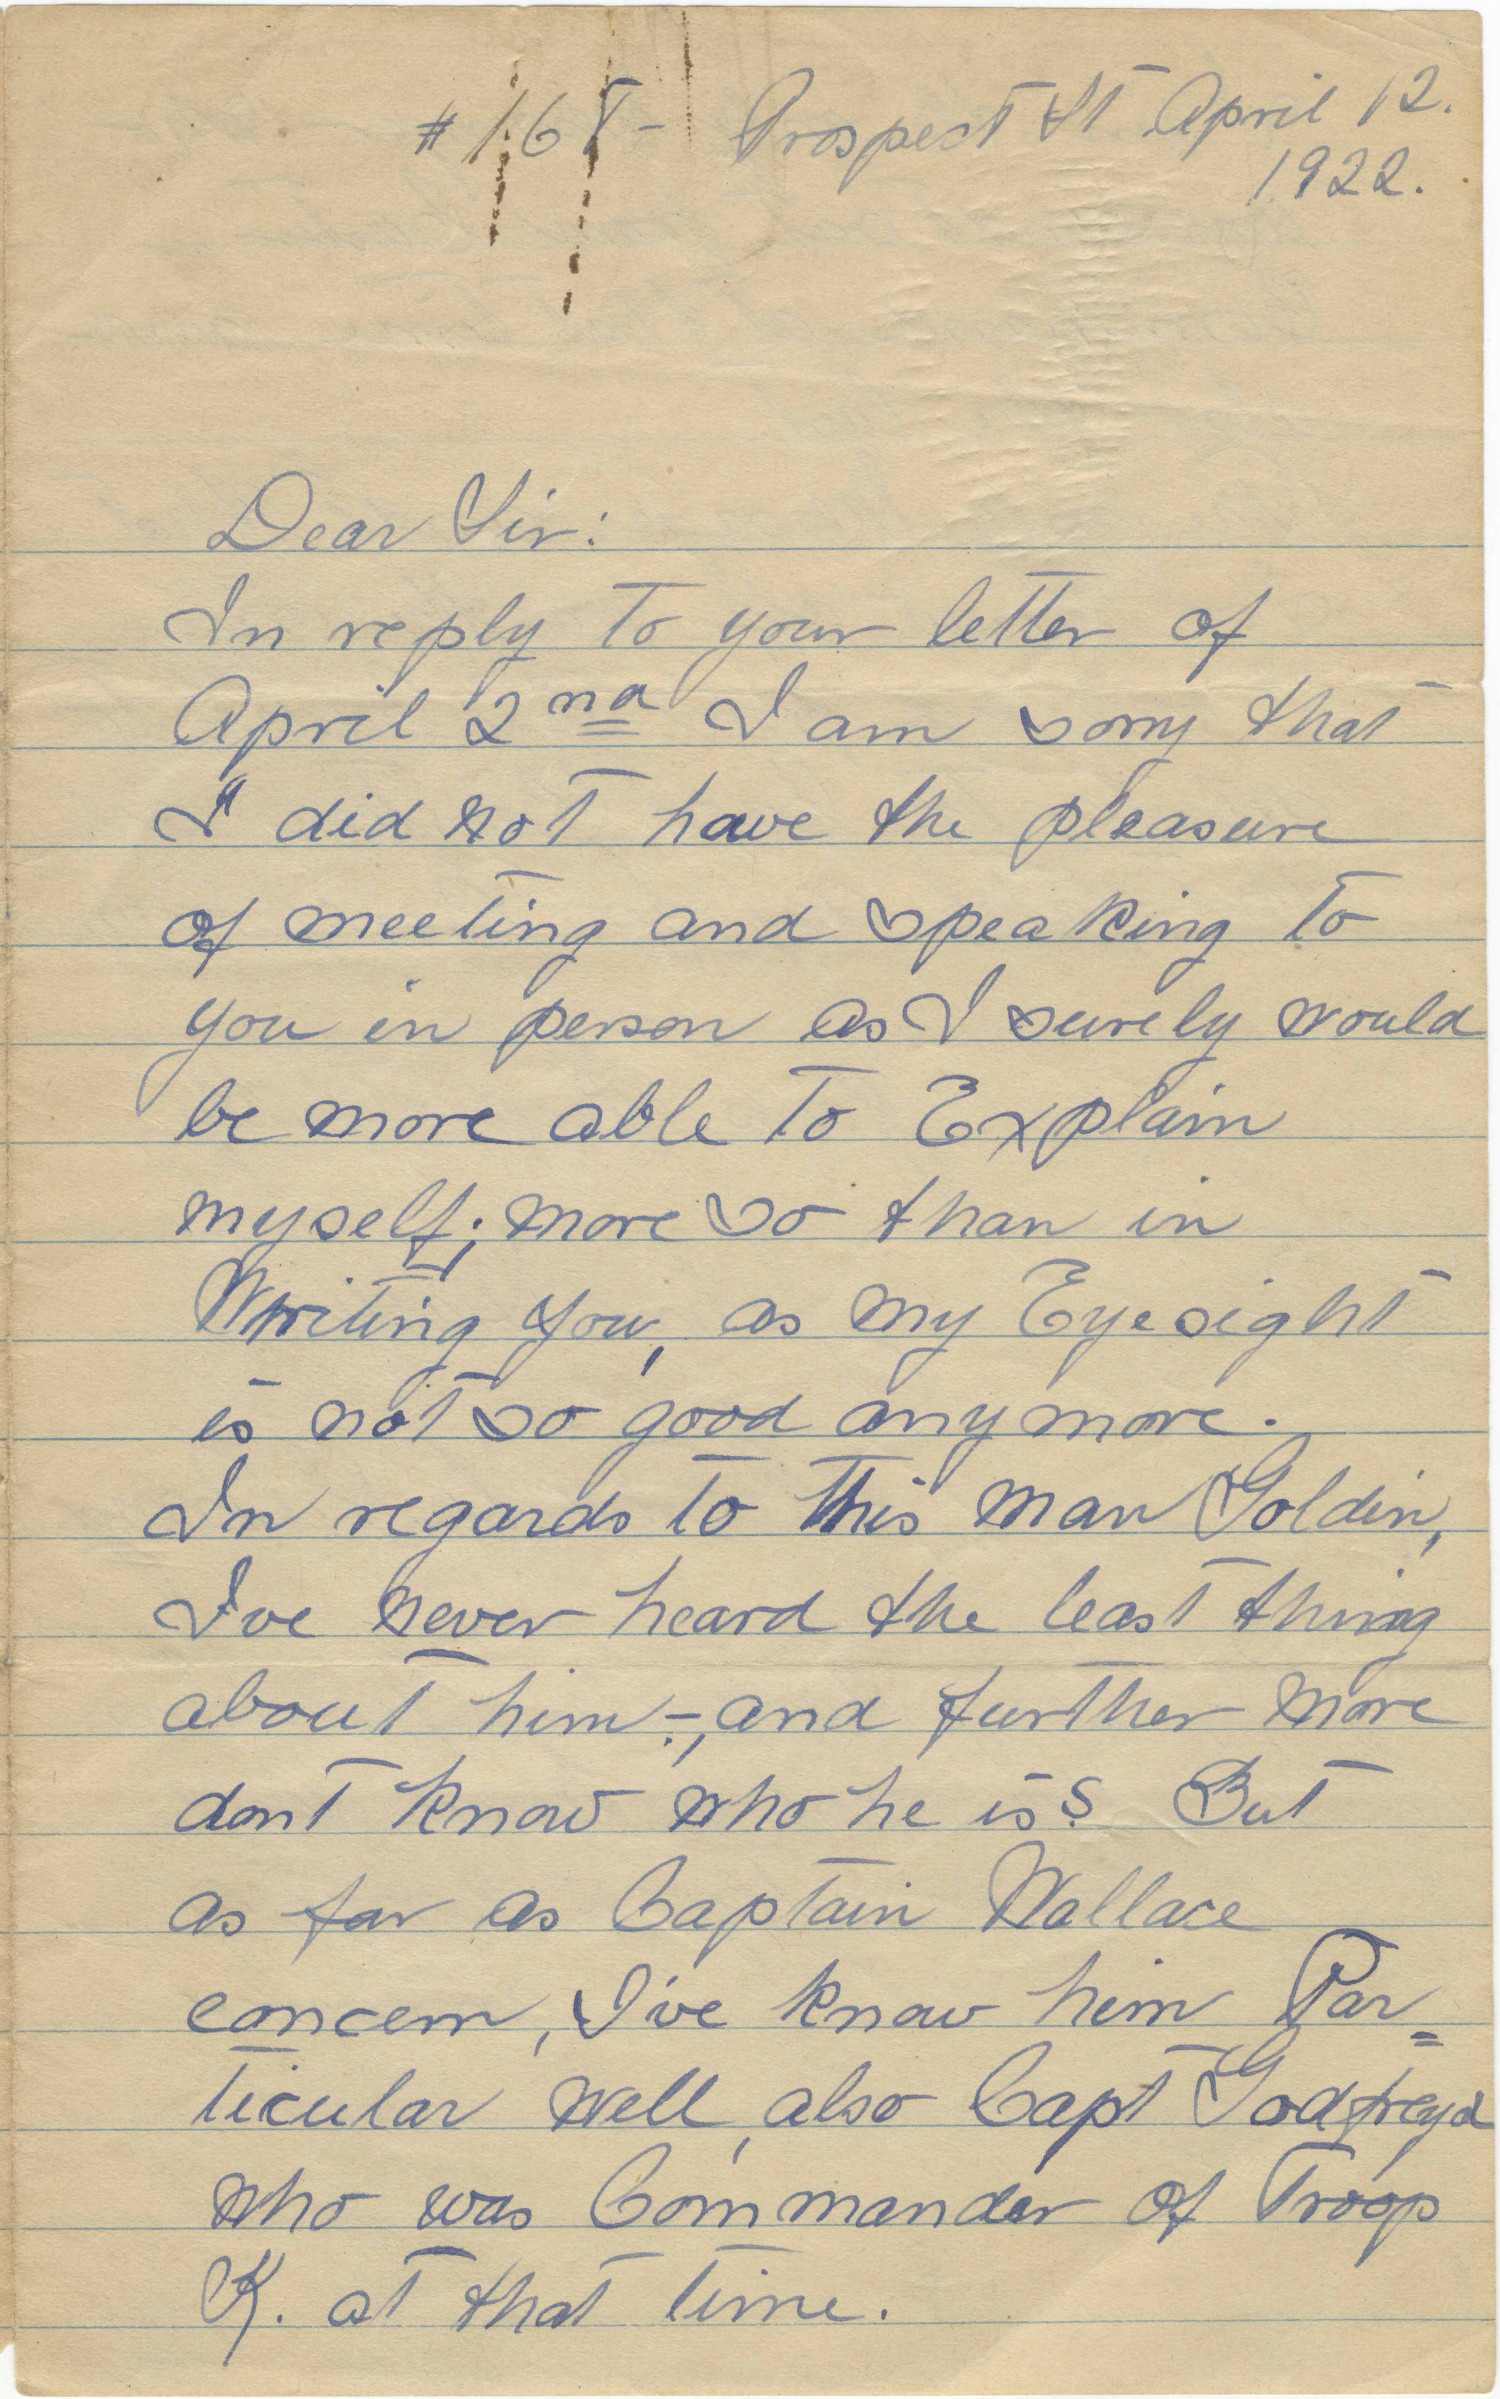 #168- Prospect St April 12.
1922.
Dear Sir:
In reply to your letter of
April 2nd I am sorry that
I did not have the pleasure
of meeting and speaking to
you in person as I surely would
be more able to Explain
myself; more so than in
Writing you, as my Eyesight
is not so good anymore.
In regards to this man Goldin,
I've never heard the least thing
about him-, and further more
dont know who he is? But
as far as Captain Wallace
concern, I've know him Par=
ticular well, also Capt Godfreyd
who was Commander of Troop
K. at that time.